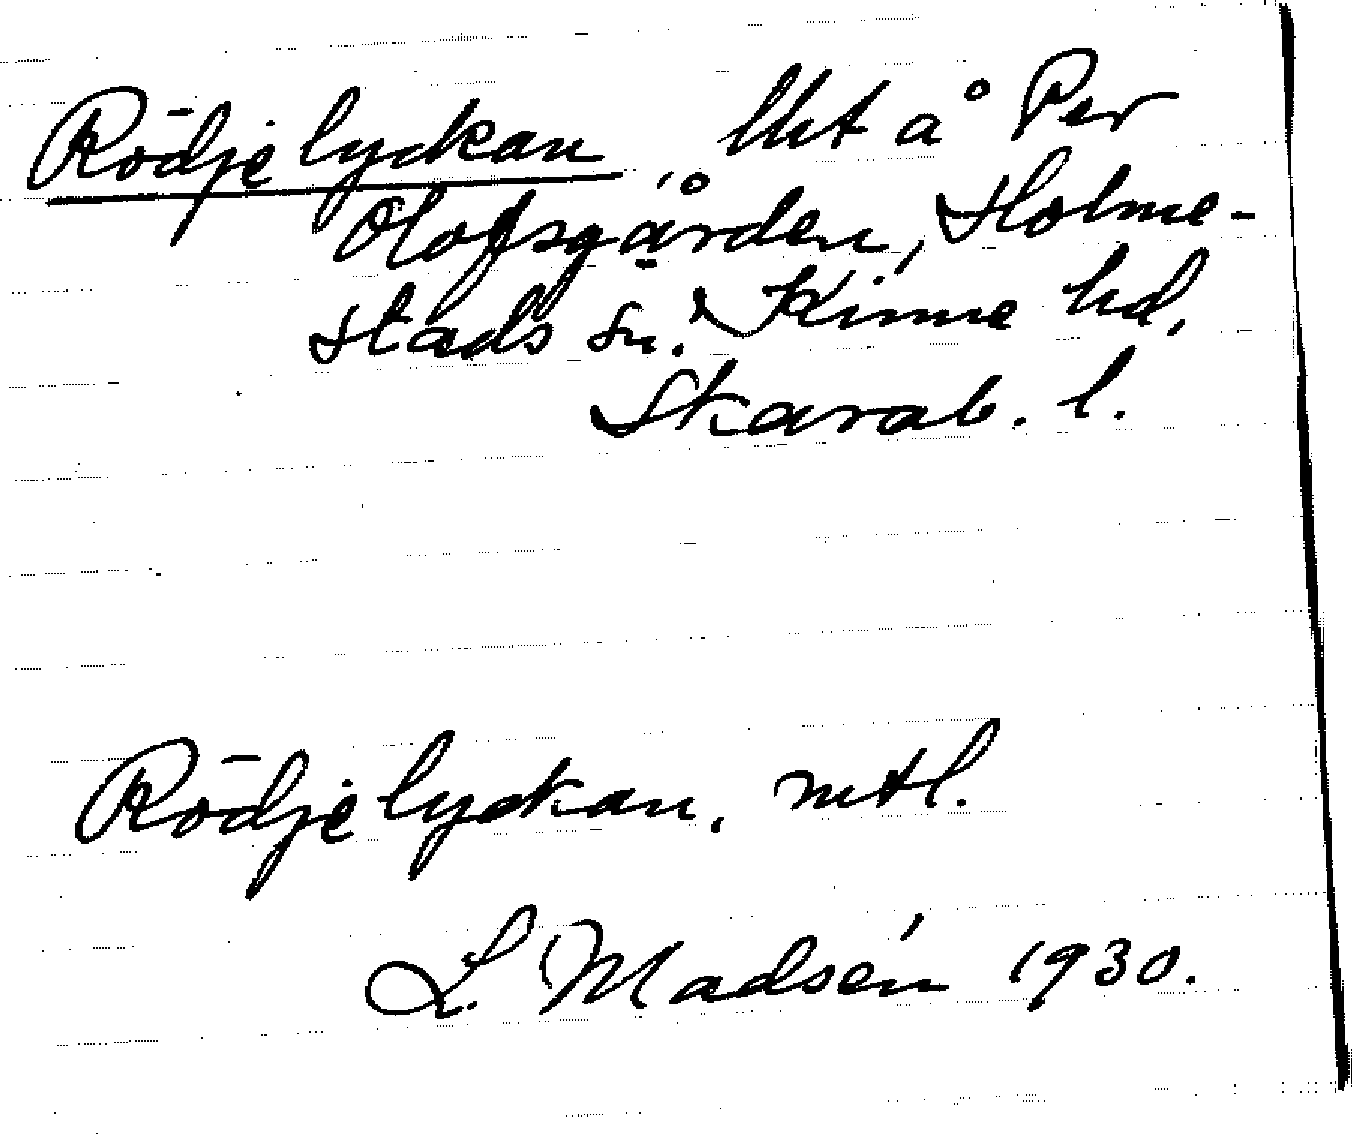 Rödjelyckan, lht å Per
Olofsgården, Holme-
stads sn. Kinne hd,
Skarab. l.
Rödjelyckan, mtl.
L. Madsén 1930.